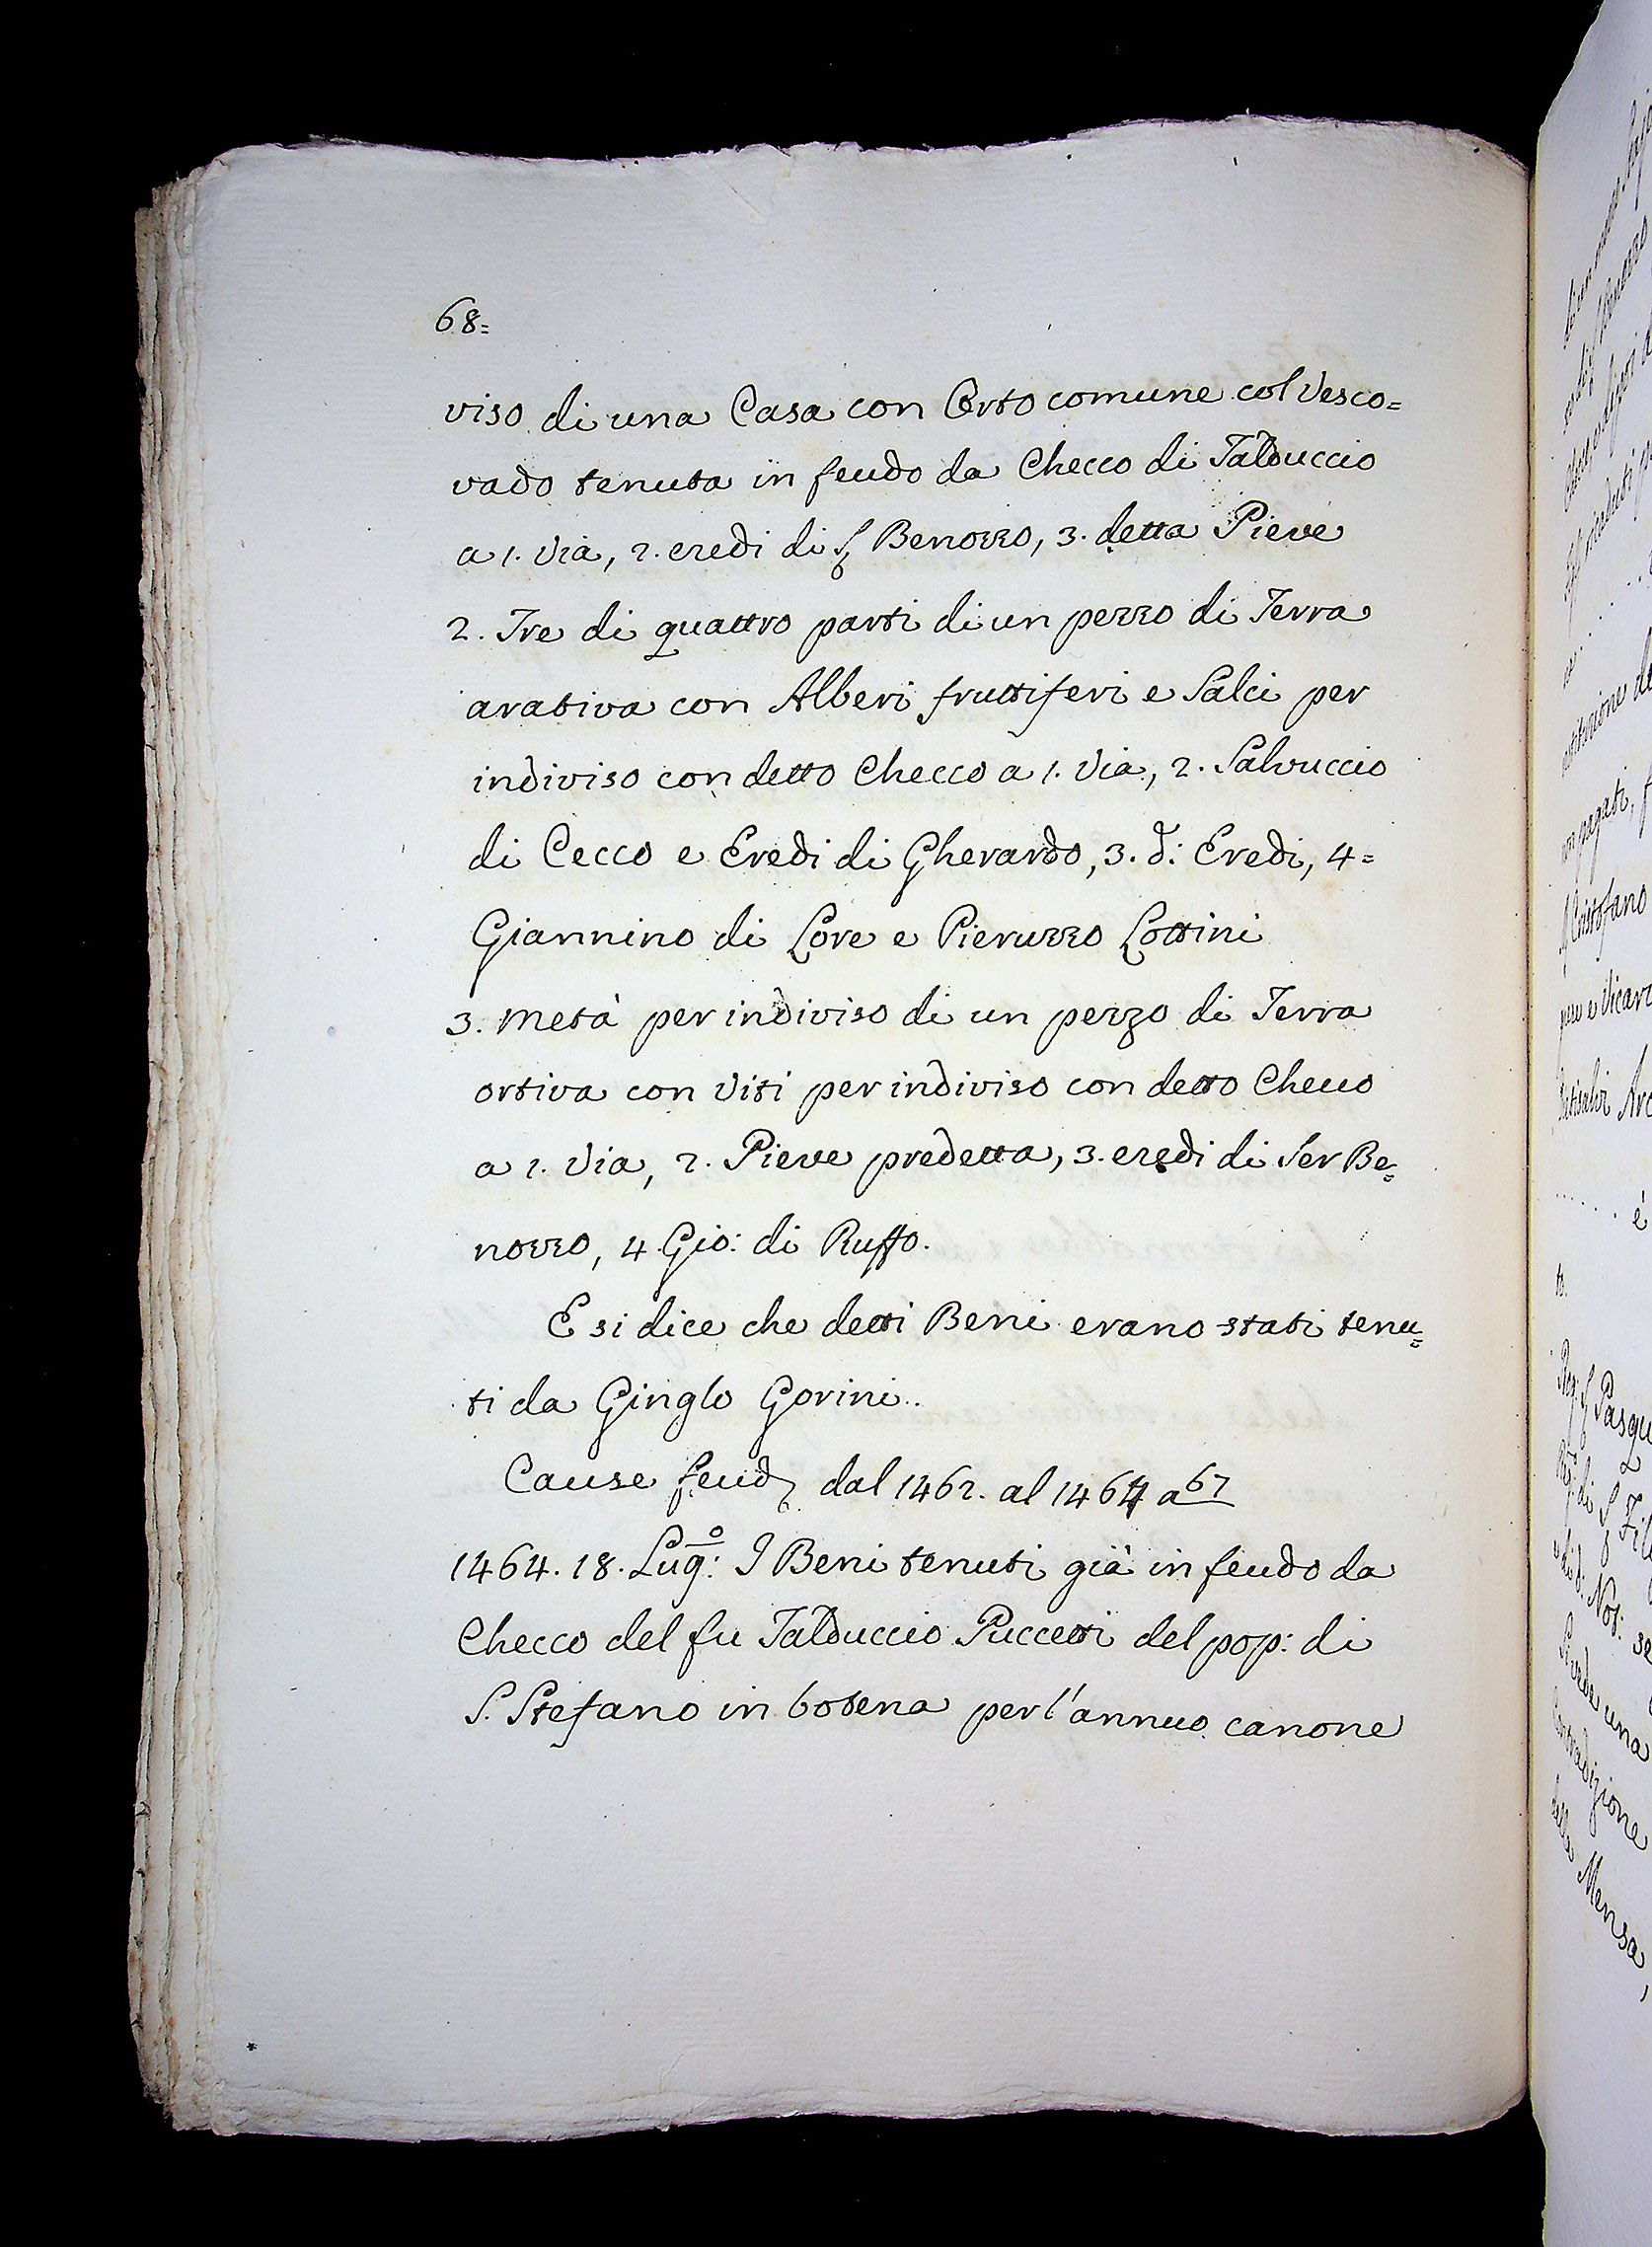 68=
viso di una Casa con Orto comune col Vesco=
vado tenuta in feudo da Checco di Talduccio
a 1. Via, 2. eredi di S. Benozzo, 3. detta Pieve
2. Tre di quattro parti di un pezzo di Terra
arativa con Alberi fruttiferi e Salci per
indiviso con detto Checco a 1. Via, 2. Salvuccio
di Cecco e Eredi di Gherardo, 3. d: Eredi, 4=
Giannino di Lore e Pieruzzo Lottini
3. Metà per indiviso di un pezzo di Terra
ortiva con Viti per indiviso con detto Checco
a 1. Via, 2. Pieve predetta, 3. eredi di Ser Be=
nozzo, 4 Gio: di Ruffo.
E si dice che detti Beni erano stati tenu=
ti da Ginglo Gorini..
Cause feud dal 1462. al 1464 a 67
1464. 18. Lug:o I Beni tenuti già in feudo da
Checco del fu Talduccio Puccetti del pop: di
S. Stefano in botena per l'annuo canone
Cristofano
Mensa,